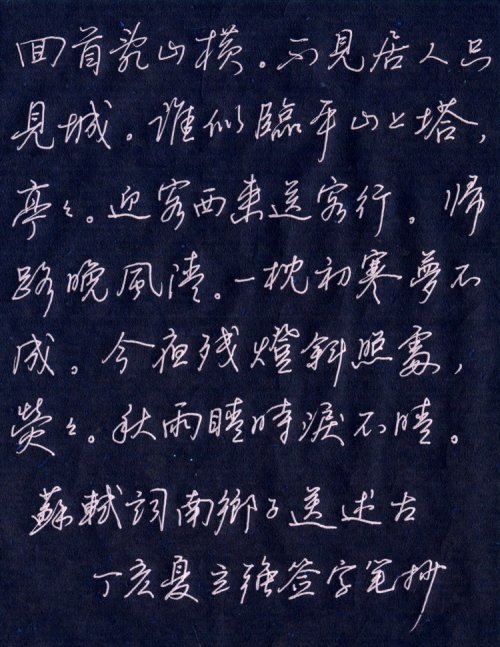 回首乱山横。不見居人只
見城。谁似臨平山上塔，
亭々。迎客西来送客行。帰
路晚風清。一枕初寒夢不
成。今夜残燈斜照處，
熒々。秋雨晴時淚不晴。
蘇軾詞南鄉子送述古
丁亥夏立強签字笔抄